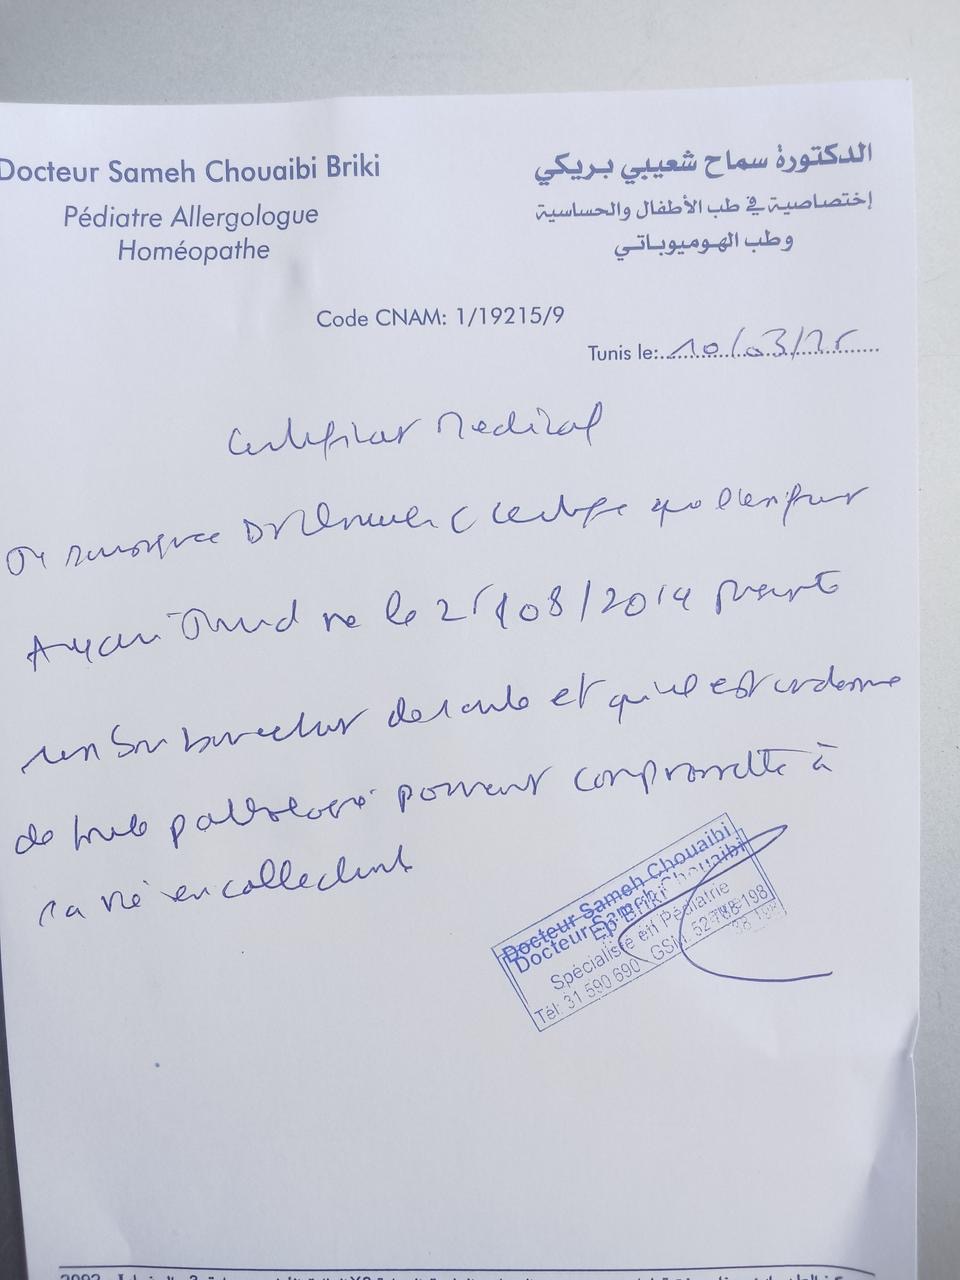 Docteur Sameh Chouaibi Briki
Pédiatre Allergologue
Homéopathe
الدكتورة سماح شعيبي بريكي
إختصاصية في طب الأطفال والحساسية
وطب الهوميوباتي
Code CNAM: 1/19215/9
Tunis le: 10/03/25
Certificat Medical
que l'enfant
né le 25/08/2014 présente
un bon de santé et qu'il est indemne
de toute pathologie pouvant compromettre à
sa vie en collectivité
Docteur Sameh Chouaibi
Ep Briki
Spécialiste en Pédiatrie
Tél: 31 590 690 GSM: 198